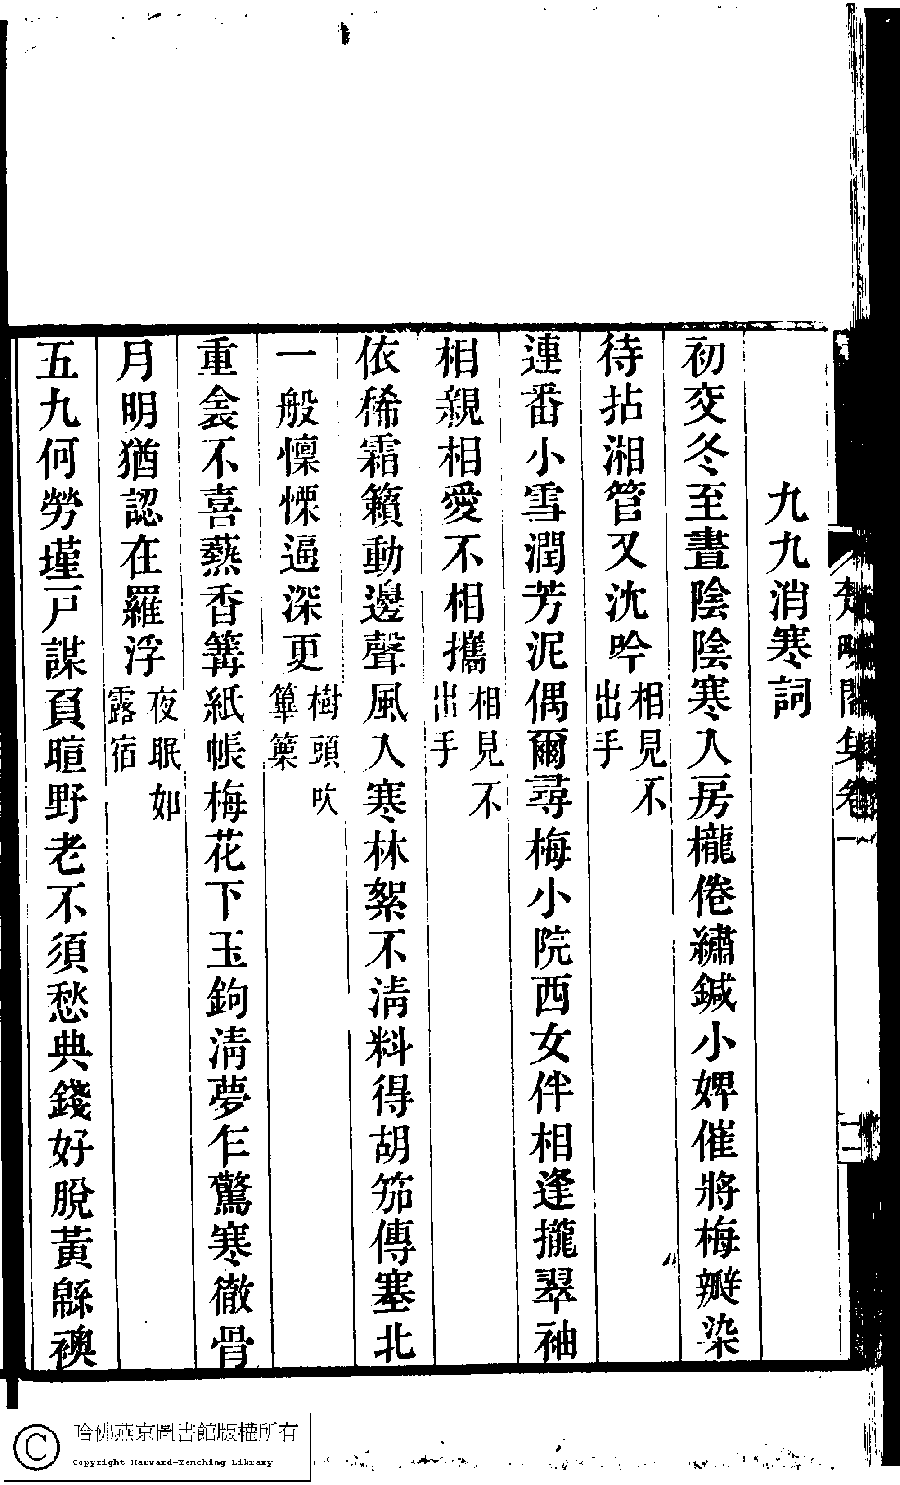 九九消寒詞
初交冬至晝陰陰寒入房櫳倦繡鍼小婢催將梅瓣染
待拈湘管又沈吟相見不出手
連番小雪潤芳泥偶爾尋梅小院西女伴相逢攏翠袖
相親相愛不相攜相見不出手
依稀霜籟動邊聲風入寒林絮不清料得胡笳傳塞北
一般懍慄逼深更樹頭吹篳篥
重衾不喜爇香篝紙帳梅花下玉鉤清夢乍驚寒徹骨
月明猶認在羅浮夜眠如露宿
五九何勞墐戸謀負暄野老不須愁典錢好脫黃緜襖
集卷一
哈佛燕京圖書館版權所有
Copyright Harvard-Yenching Library